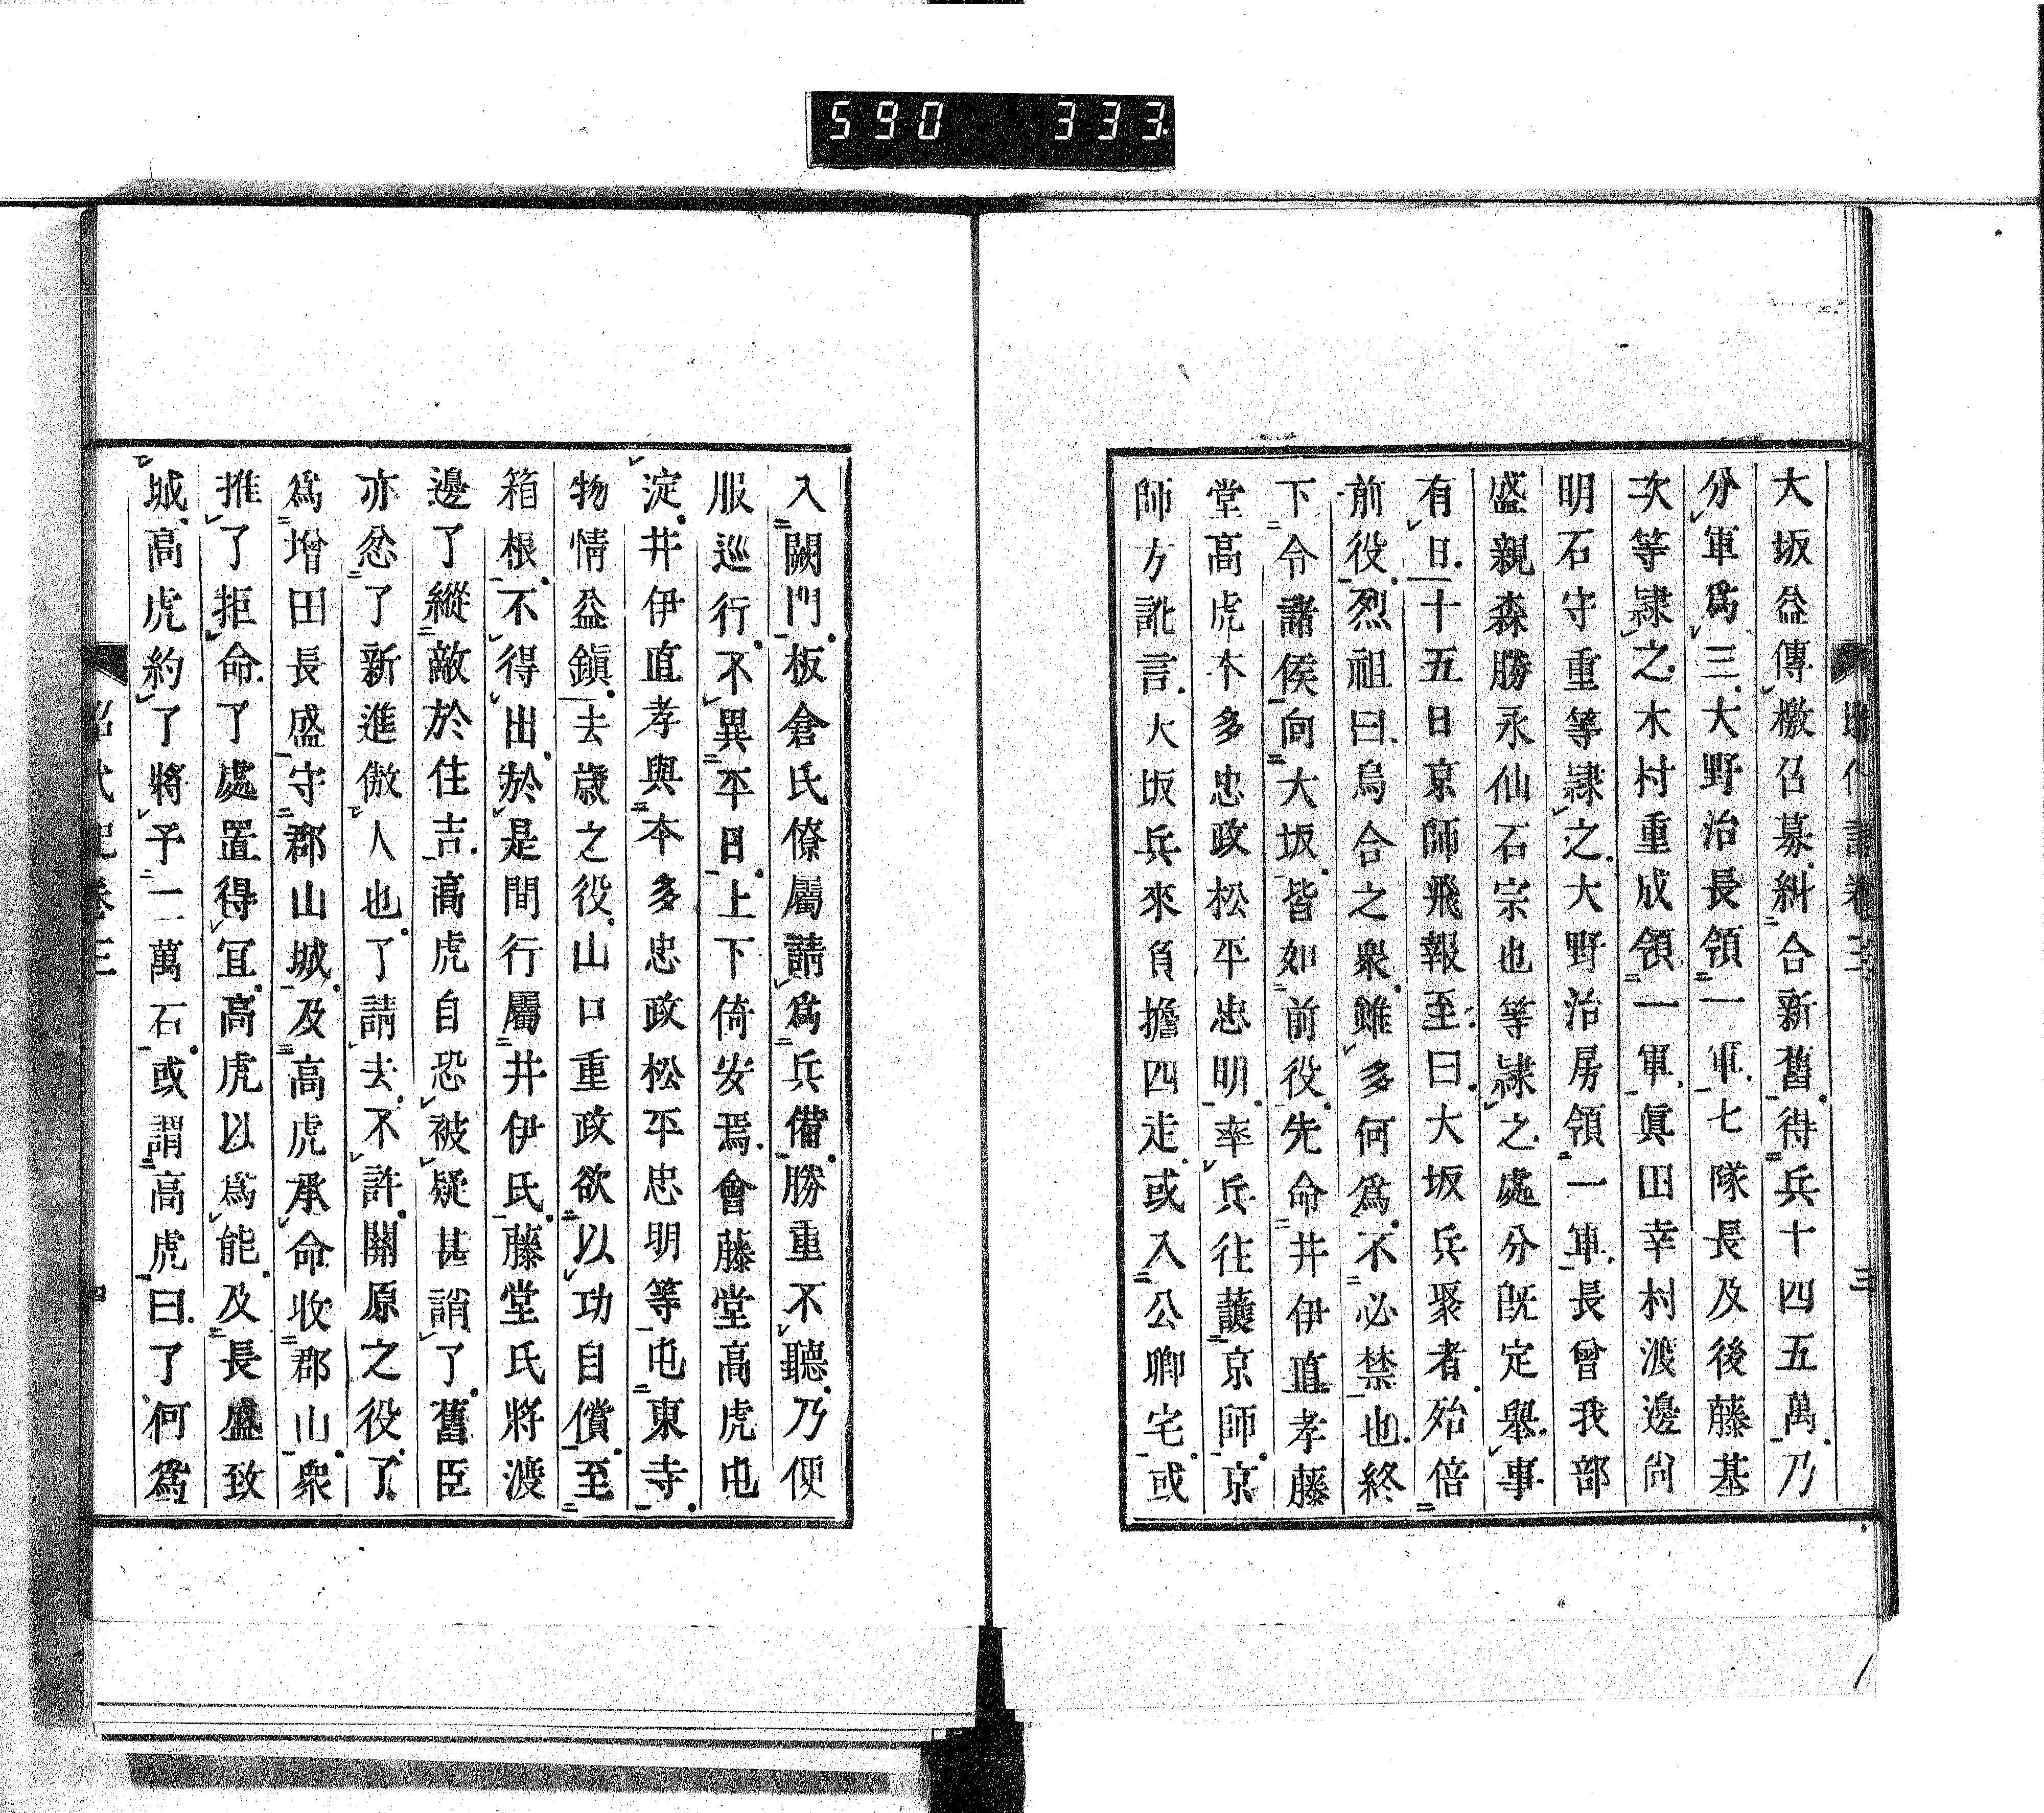 590 333
大坂益傳檄召募糾合新舊得兵十四五萬乃
分軍爲三大野治長領一軍七隊長及後藤基
次等隷之木村重成領一軍眞田幸村渡邊尙
明石守重等隷之大野治房領一軍長曾我部
盛親森勝永仙石宗也等隷之處分旣定擧事
有日十五日京師飛報至曰大坂兵聚者殆倍
前役烈祖曰烏合之衆雖多何爲不必禁也終
下令諸侯向大坂皆如前役先命井伊直孝藤
堂高虎本多忠政松平忠明率兵往護京師京
師方訛言大坂兵來負擔四走或入公卿宅或
入闕門板倉氏僚屬請爲兵備勝重不聽乃便
服巡行不異平日上下倚安焉會藤堂高虎屯
淀井伊直孝與本多忠政松平忠明等屯東寺
物情益鎭去歲之役山口重政欲以功自償至
箱根不得出於是間行屬井伊氏藤堂氏將渡
邊了縱敵於住吉高虎自恐被疑甚誚了舊臣
亦忿了新進傲人也了請去不許關原之役了
爲增田長盛守郡山城及高虎承命收郡山衆
推了拒命了處置得宜高虎以爲能及長盛致
城高虎約了將予二萬石或謂高虎曰了何爲
卷三
四